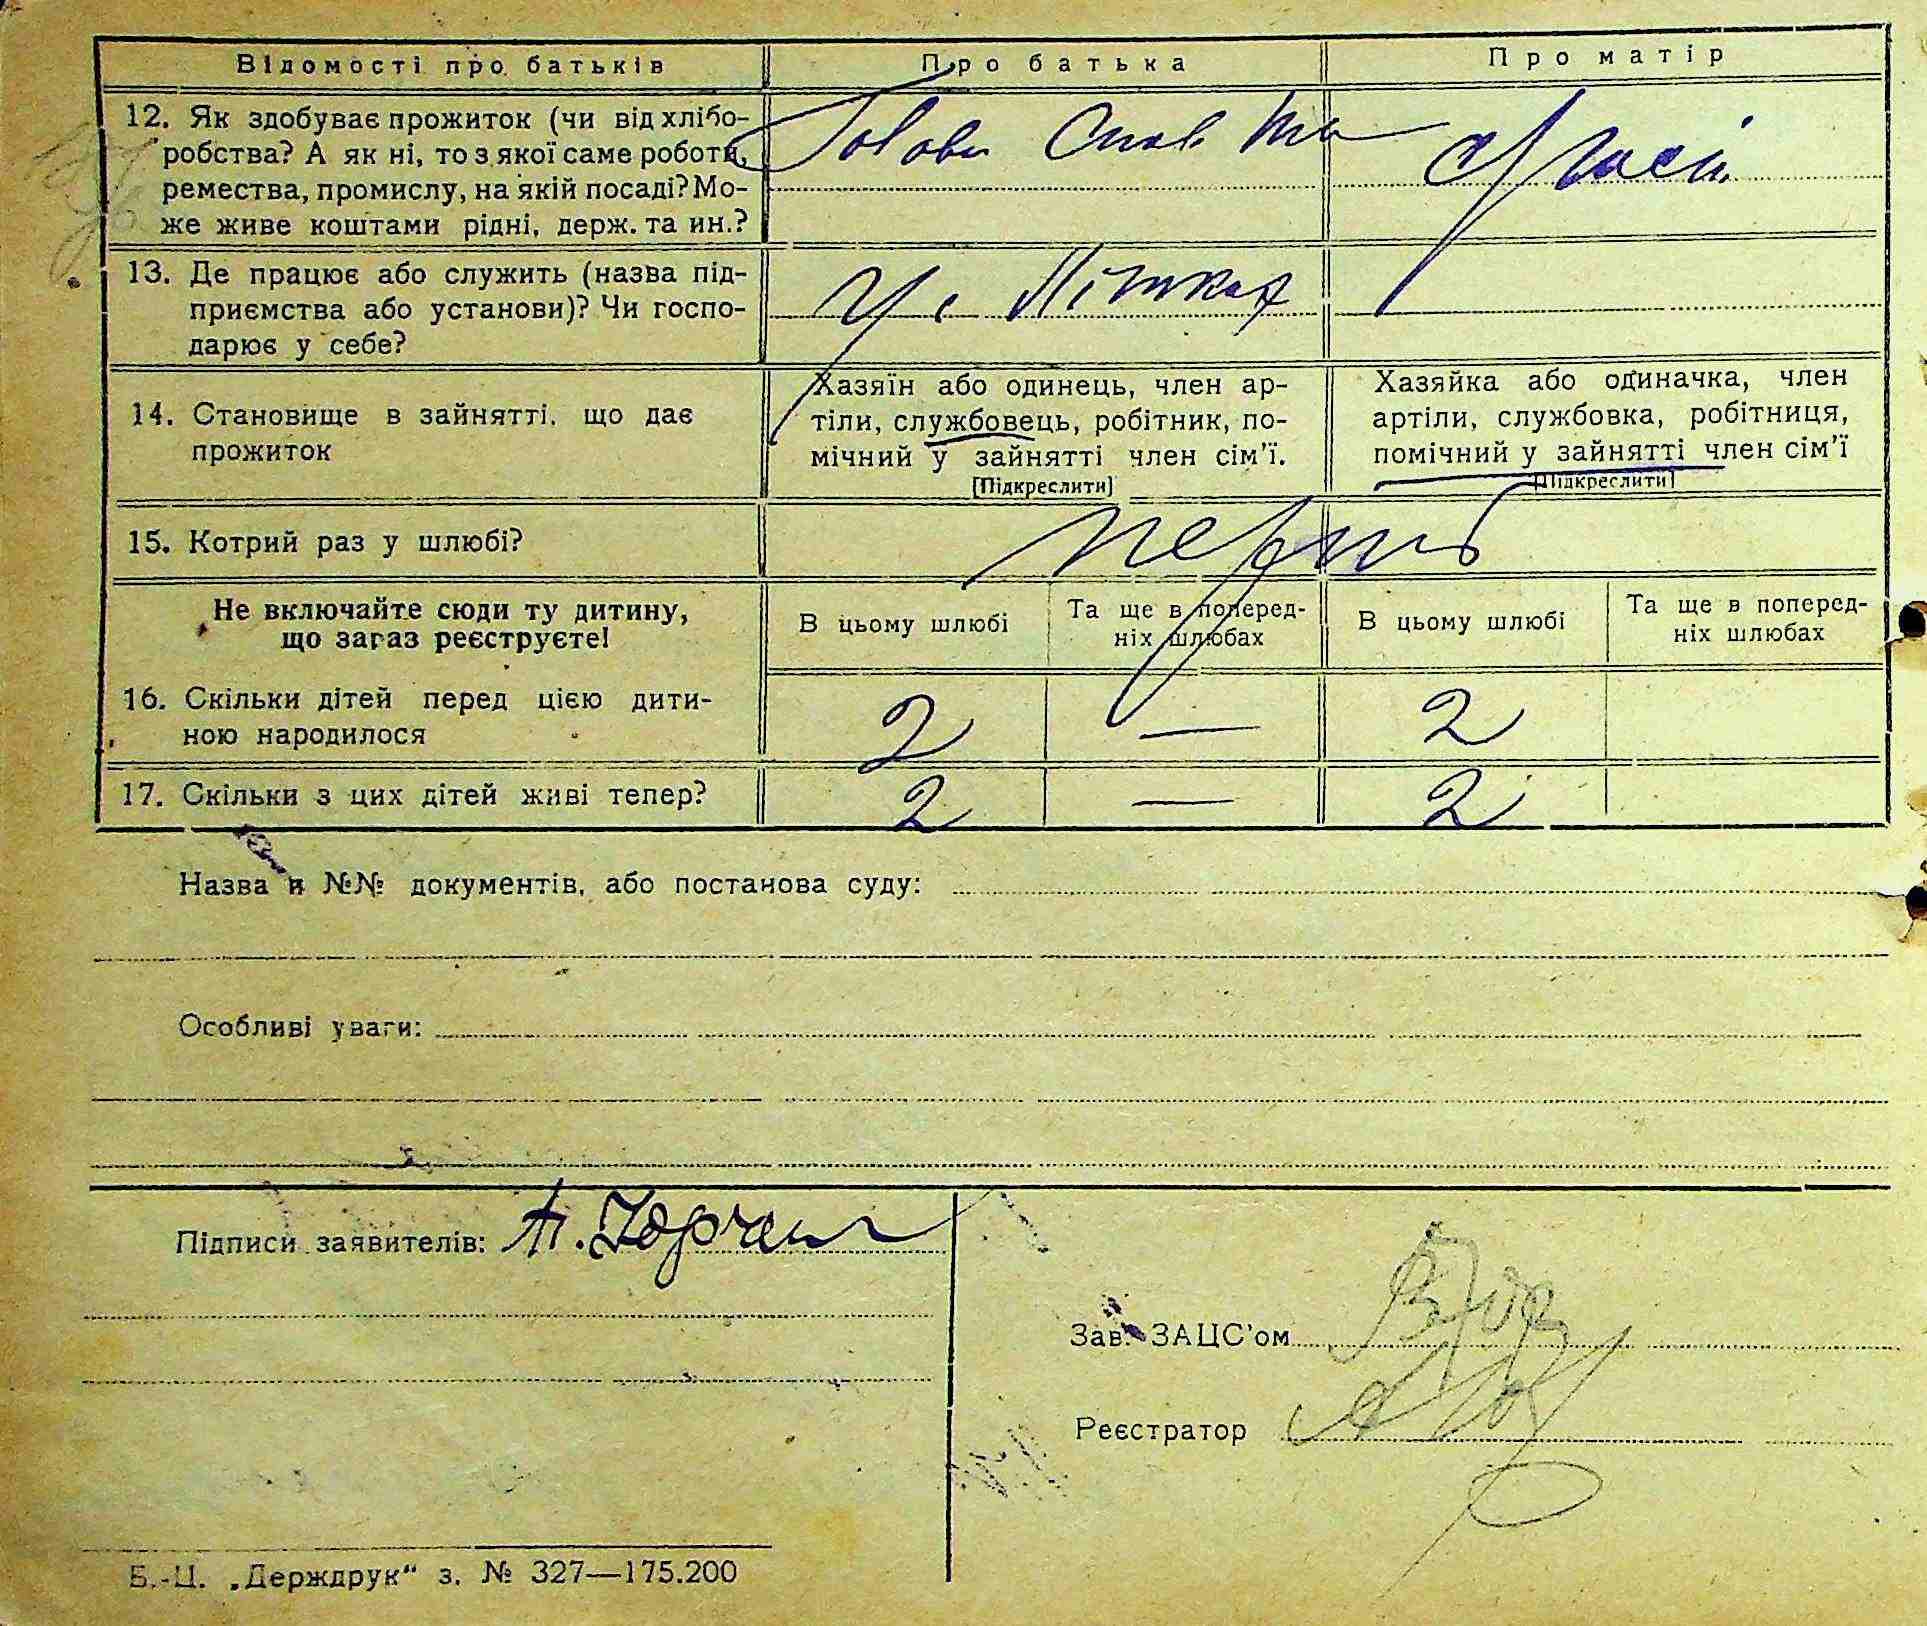 Відомості про батьків
Про батька
Про матір
12. Як здобуває прожиток (чи від хлібо-
робства? А як ні, то з якої саме роботи,
ремества, промислу, на якій посаді? Мо-
же живе коштами рідні, держ. та ин.?
Голова
13. Де працює або служить (назва під-
приємства або установи)? Чи госпо-
дарює у себе?
у с. Літках
14. Становище в зайнятті, що дає
прожиток
Хазяїн або одинець, член ар-
тіли, службовець, робітник, по-
мічний у зайнятті член сім'ї.
[Підкреслити]
Хазяйка або одиначка, член
артіли, службовка, робітниця,
помічний у зайнятті член сім'ї
[Підкреслити]
15. Котрий раз у шлюбі?
перший
Не включайте сюди ту дитину,
що зараз реєструєте!
В цьому шлюбі
Та ще в поперед-
ніх шлюбах
В цьому шлюбі
Та ще в поперед-
ніх шлюбах
16. Скільки дітей перед цією дити-
ною народилося
2 — 2
17. Скільки з цих дітей живі тепер?
2 — 2
Назва и №№ документів, або постанова суду:
Особливі уваги:
Підписи заявителів:
Зав. ЗАЦС'ом
Реєстратор
Б.-Ц. „Держдрук“ з. № 327—175.200